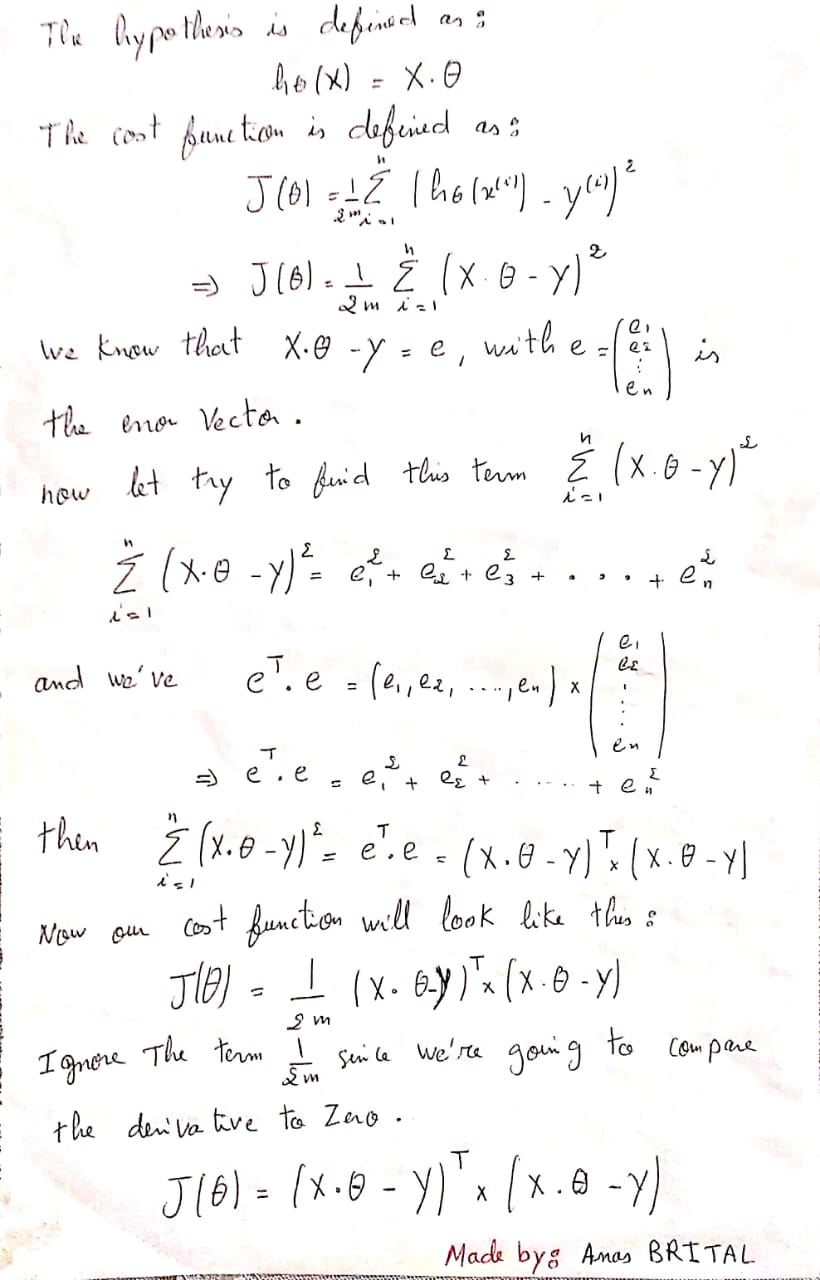 The hypothesis is defined as :
hθ(X) = X.θ
The cost function is defined as :
J(θ) = 1/2m Σ_{i=1}^{n} (hθ(x^(i)) - y^(i))²
⇒ J(θ) = 1/2m Σ_{i=1}^{n} (X.θ - Y)²
We know that X.θ - Y = e, with e = (e₁ e₂ ⋮ eₙ) is
the error Vector.
now let try to find this term Σ_{i=1}^{n} (X.θ - Y)²
Σ_{i=1}^{n} (X.θ - Y)² = e₁² + e₂² + e₃² + .... + eₙ²
and we've e^T.e = (e₁, e₂, ...., eₙ) x (e₁ e₂ ⋮ eₙ)
⇒ e^T.e = e₁² + e₂² + ..... + eₙ²
then Σ_{i=1}^{n} (X.θ - Y)² = e^T.e = (X.θ - Y)^T x (X.θ - Y)
Now our cost function will look like this :
J(θ) = 1/2m (X.θ-Y)^T x (X.θ - Y)
Ignore The term 1/2m since we're going to compare
the derivative to Zero.
J(θ) = (X.θ - Y)^T x (X.θ - Y)
Made by: Anas BRITAL